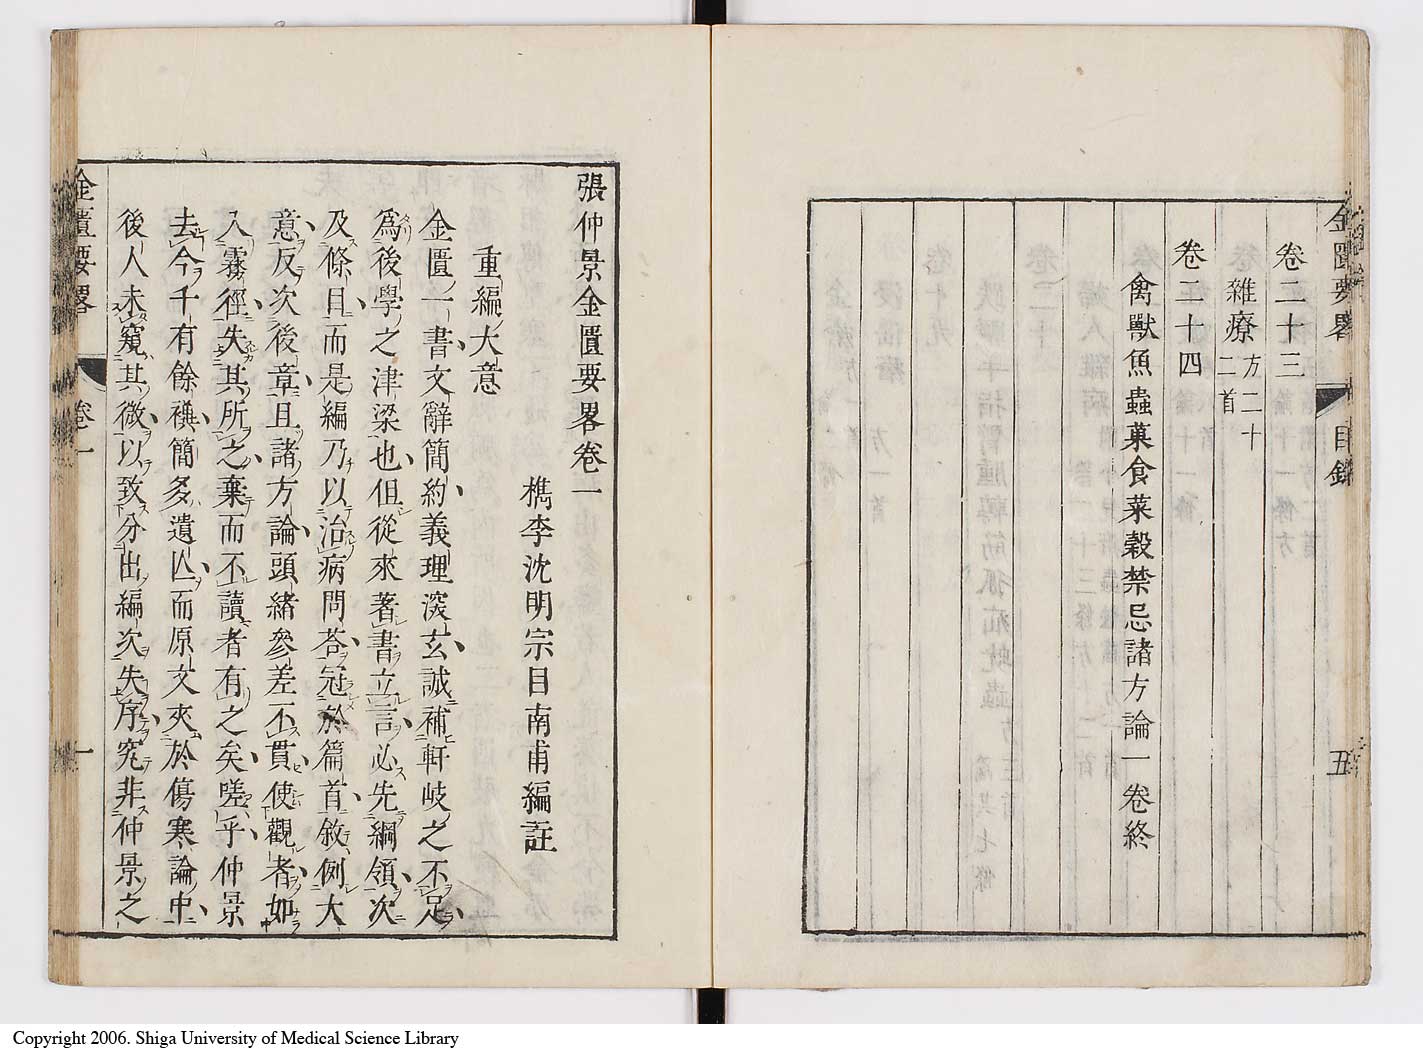 金匱要畧
目錄
五
卷二十三
雜療方二十二首
卷二十四
禽獸魚蟲菓食菜穀禁忌諸方論一卷終
張仲景金匱要畧卷一
檇李沈明宗目南甫編註
重編大意
金匱一書文辭簡約義理深玄誠補軒岐之不足
爲後學之津梁也但從來著書立言必先綱領次
及條目而是編乃以治病問荅冠於篇首敘例大
意反次後章且諸方論頭緒參差不貫使觀者如
入霧徑失其所之棄而不讀者有之矣嗟乎仲景
去今千有餘禩簡多遺亾而原文夾於傷寒論中
後人未窺其微以致分出編次失序究非仲景之
金匱要畧
卷一
一
Copyright 2006. Shiga University of Medical Science Library